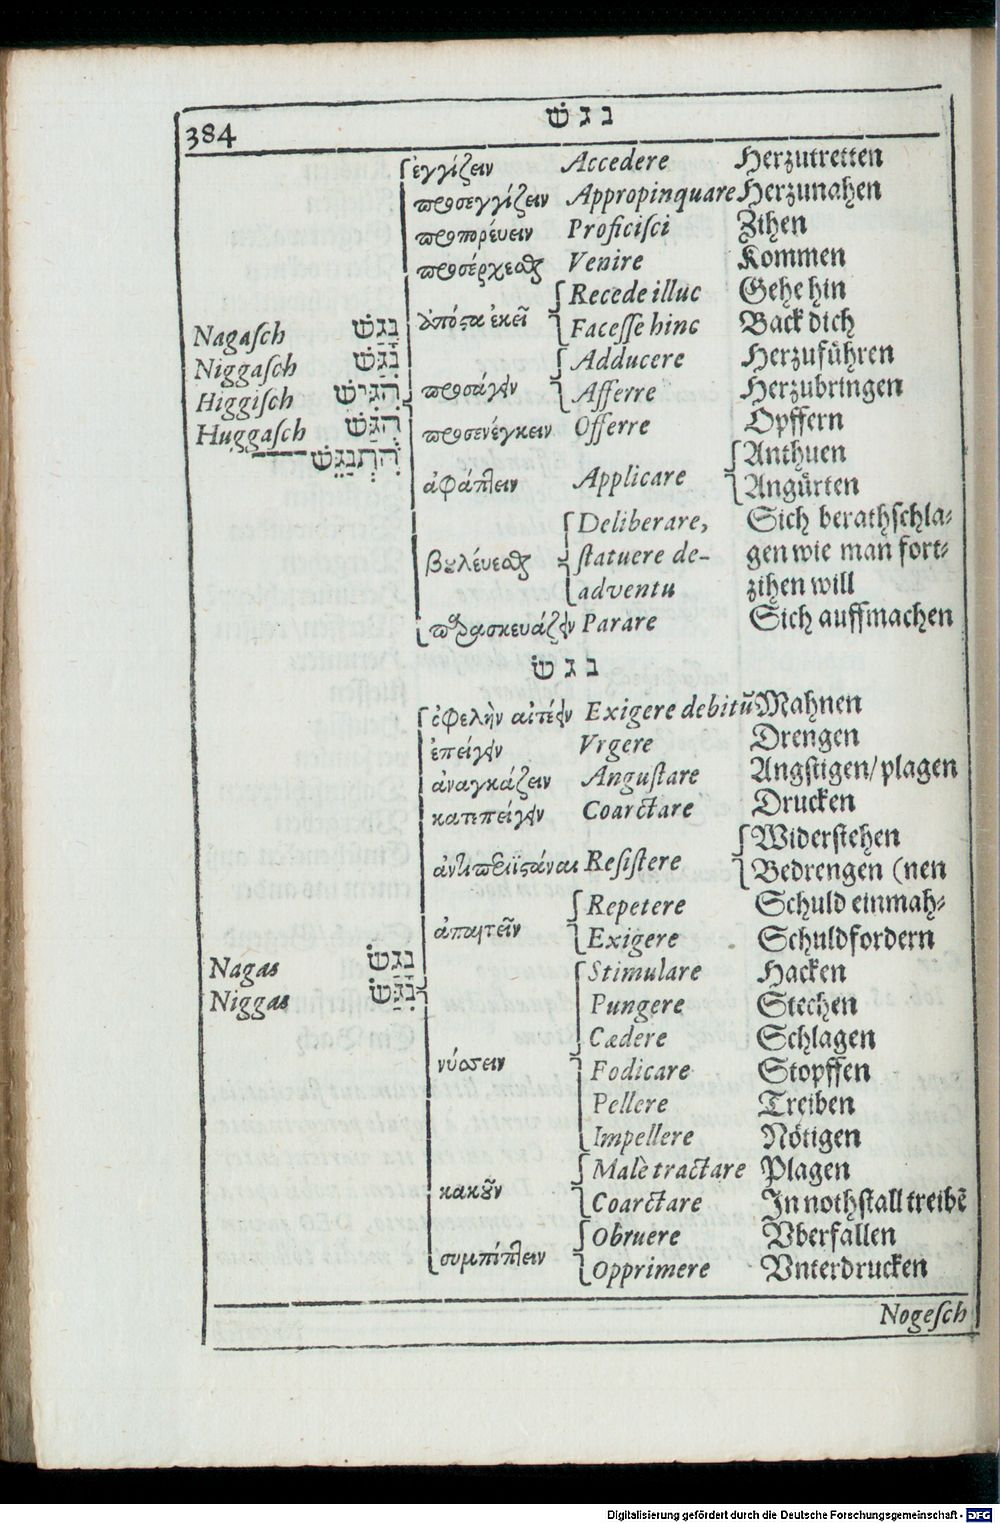 384 נ ג שׁ
ἐγγίζειν Accedere Herzutretten
προσεγγίζειν Appropinquare Herzunahen
προπορέυειν Proficiſci Zihen
προσέρχεσθαι Venire Kommen
Recede illuc Gehe hin
ἀπόςα ἐκεῖ Faceſſe hinc Back dich
Nagaſch נָגַשׁ
Adducere Herzufůhren
Niggaſch נִגַּשׁ
προσάγειν Afferre Herzubringen
Higgiſch הִגִּישׁ
προσενέγκειν Offerre Opffern
Huggaſch הֻגַּשׁ
Anthuen
---- הִתְנַגֵּשׁ
ἀφάπτειν Applicare Angürten
Deliberare, Sich berathſchla⸗
βουλέυεσθαι ſtatuere de- gen wie man fort⸗
adventu zihen will
παρασκευάζειν Parare Sich auffmachen
נ ג שׂ
ὀφελὴν αἰτέειν Exigere debitũ Mahnen
ἐπείγειν Vrgere Drengen
ἀναγκάζειν Anguſtare Angſtigen/plagen
κατεπείγειν Coarctare Drucken
Widerſtehen
Reſiſtere Bedrengen (nen
Repetere Schuld einmah⸗
ἀπαιτεῖν Exigere Schuldfordern
Nagas נָגַשׂ
Stimulare Hacken
Niggas נִגַּשׂ
Pungere Stechen
Cædere Schlagen
νύσσειν Fodicare Stopffen
Pellere Treiben
Impellere Nötigen
Malè tractare Plagen
κακοῦν Coarctare In nothſtall treibẽ
Obruere Vberfallen
συμπίπτειν Opprimere Vnterdrucken
Nogeſch
Digitalisierung gefördert durch die Deutsche Forschungsgemeinschaft - DFG